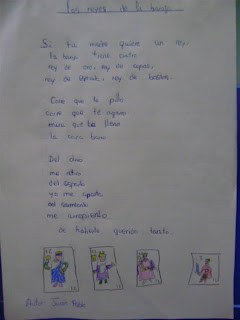 Los reyes de la baraja
Si tu madre quiere un rey,
la baraja tiene cuatro:
rey de oro, rey de copas,
rey de espada, rey de bastos.
Corre que te pillo
corre que te agarro
mira que te lleno
la cara barro
Del olivo
me retiro
del esparto
yo me aparto
del sarmiento
me arrepiento
de haberte querido tanto.
Autor: Juan